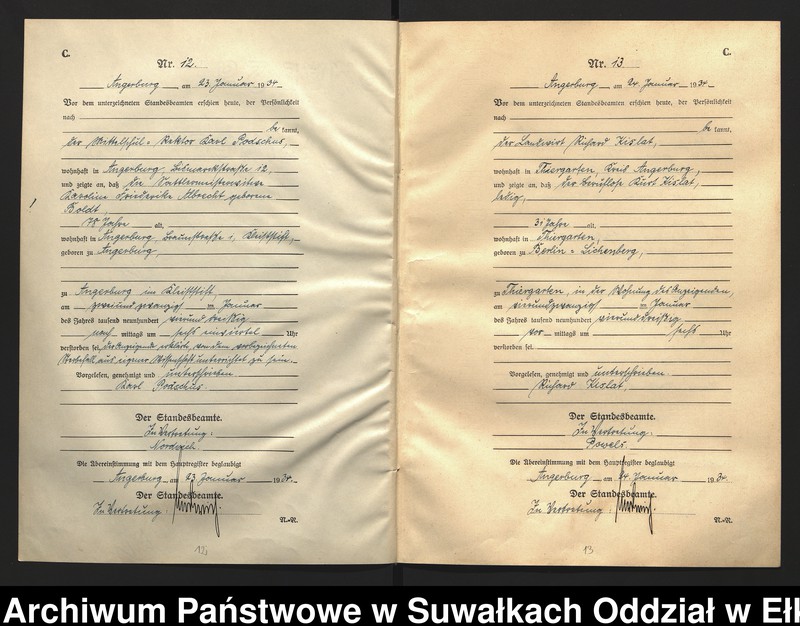 C.
Nr. 12.
Angerburg am 23. Januar 1934
Vor dem unterzeichneten Standesbeamten erschien heute, der Persönlichkeit
nach
be kannt,
der Mittelschul-Rektor Karl Podschus,
wohnhaft in Angerburg, Bismarckstraße 12,
und zeigte an, daß die Sattlermeisterswitwe
Karoline Friederike Albrecht geborene
Boldt
78 Jahre alt,
wohnhaft in Angerburg, Braunstraße 1, Kleiststift,
geboren zu Angerburg,
zu Angerburg im Kleiststift
am zweiundzwanzig ten Januar
des Jahres tausend neunhundert vierunddreißig
nach mittags um sechs einviertel Uhr
verstorben sei, der Anzeigende erklärte, von dem vorbezeichneten
Sterbefall aus eigener Wissenschaft unterrichtet zu sein.
Vorgelesen, genehmigt und unterschrieben
Karl Podschus.
Der Standesbeamte.
In Vertretung:
Die Übereinstimmung mit dem Hauptregister beglaubigt
Angerburg am 23. Januar 1934.
Der Standesbeamte.
In Vertretung:
N.-N.
12
C.
Nr. 13
Angerburg am 24. Januar 1934
Vor dem unterzeichneten Standesbeamten erschien heute, der Persönlichkeit
nach
be kannt,
der Landwirt Richard Kislat,
wohnhaft in Thiergarten, Kreis Angerburg,
und zeigte an, daß der berufslose Kurt Kislat,
ledig,
31 Jahre alt,
wohnhaft in Thiergarten,
geboren zu Berlin-Lichtenberg,
zu Thiergarten, in der Wohnung des Anzeigenden,
am vierundzwanzig ten Januar
des Jahres tausend neunhundert vierunddreißig
vor mittags um sechs Uhr
verstorben sei.
Vorgelesen, genehmigt und unterschrieben
Richard Kislat.
Der Standesbeamte.
In Vertretung:
Powels.
Die Übereinstimmung mit dem Hauptregister beglaubigt
Angerburg am 24. Januar 1934.
Der Standesbeamte.
In Vertretung:
N.-N.
13
Archiwum Państwowe w Suwałkach Oddział w Ełk